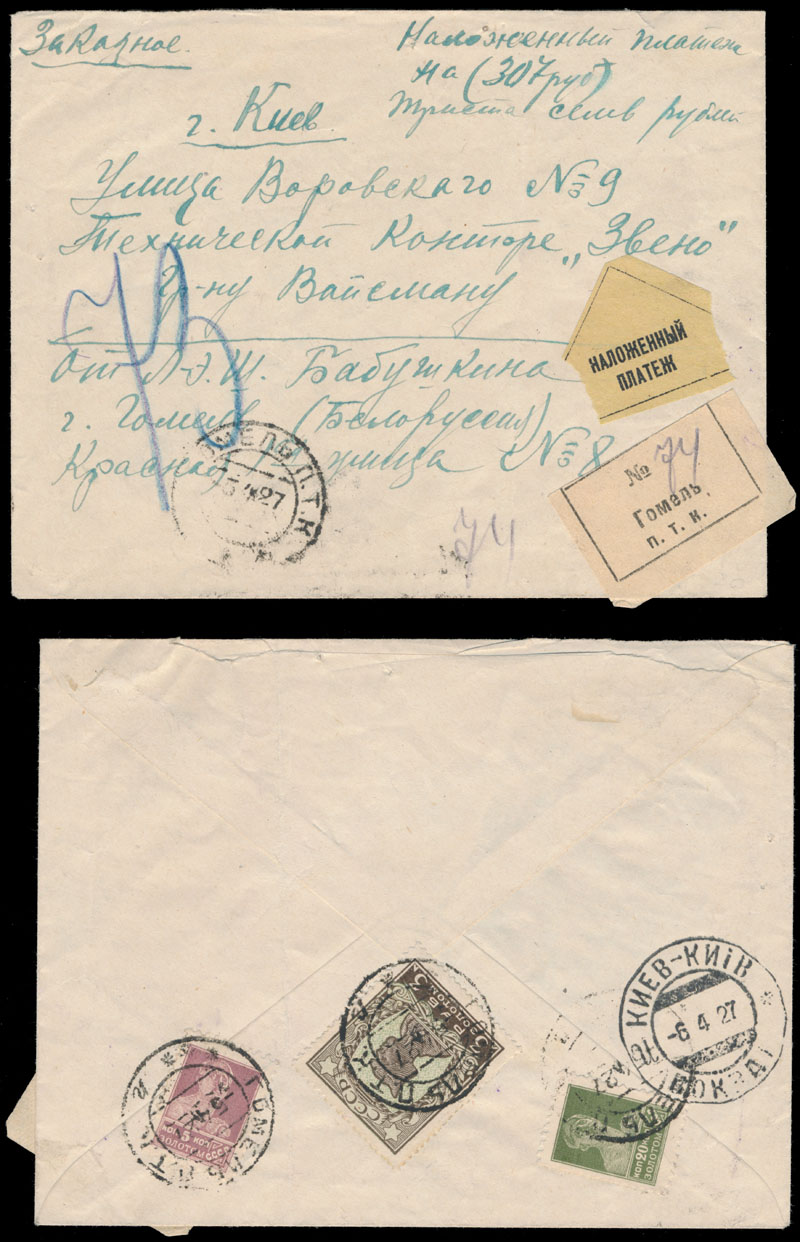 Заказное.
Наложенный платеж
на (307 руб)
триста семь рублей
г. Киев.
Улица Воровскаго № 9
Технической Конторе „Звено"
Гр-ну Вайсману
От Л-Э.Ш. Бабушкина
г. Гомель (Белоруссия)
Красная улица № 8
НАЛОЖЕННЫЙ
ПЛАТЕЖ
№ 74
Гомель
П. Т. К.
74
П.Т.К
27
КИЕВ-КИЇВ
-6 4 27
ВОКЗАЛ
ГОМЕЛЬ П.Т.К.
5 КОП
ЗОЛОТОМ СССР
3 РУБ 3
ЗОЛОТОМ
СССР
КОП 20 КОП
ЗОЛОТОМ